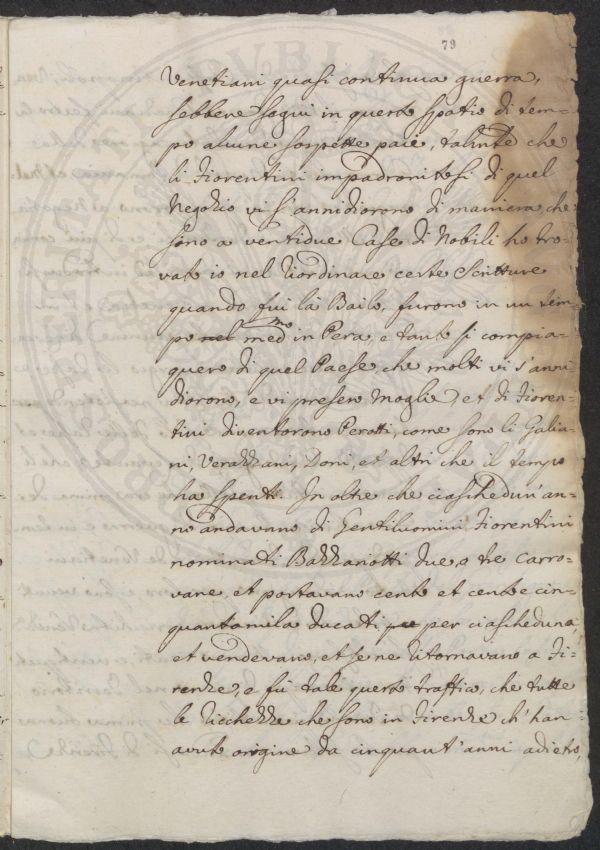 79
Venetiani quasi continua guerra,
sebbene seguì in questo spatio di tem-
po alcune sospette paci, talmte che
li Fiorentini impadronitesi di quel
Negozio vi s'annidiorono di maniera, che
sono a ventidue Case di Nobili ho tro-
vato io nel riordinare certe Scritture
quando fui là Bailo, furono in un tem-
po nel medmo in Pera, e tanto si compia-
quero di quel Paese, che molti vi s'anni
diorono, e vi presero Moglie, et di Fioren-
tini diventorono Perotti, come sono li Galia-
ni, Verazzani, Doni, et altri che il tempo
ha spenti. In oltre che ciaschedun'an-
no andavano di Gentiluomini Fiorentini
nominati Bazzariotti due, o tre Carro-
vane, et portavano cento et cento e cin-
quantamila ducati per ciascheduna,
et vendevano, et se ne ritornavano a Fi-
renze, e fù tale questo traffico, che tutte
le ricchezze che sono in Firenze ch'han-
avuto origine da cinquant'anni adietro,